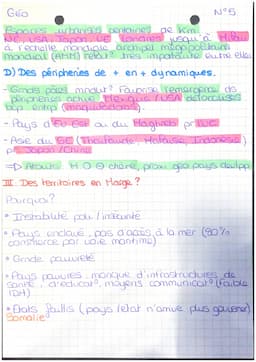 Géo N°5.
Espaces urbanisés centaines de km.
NE, USA, Japon, UE Londres jusqu'à Milan
à l'échelle mondiale archipel mégapolitain
mondial (AMM) relat° très importante entre elles
D) Des périphéries de + en + dynamiques.
- Grands pôles mondx favorise l'émergence de
périphéries active Mexique / USA
bcp entrp (maquiladoras).
- Pays d'Eu Est ou du Maghreb pr l'UE
- Asie du SE (Thaïlande, Malaisie, Indonésie)
pr Japon / Chine
=> Atouts M O chère, prox géo pays dévlpp
III Des Territoires en Marge ?
Pourquoi ?
• Instabilité poli / insécurité
• Pays enclavé, pas d'accès à la mer (90%
commerce par voie maritime)
• Grande pauvreté
• Pays pauvres : manque d'infrastructures de
santé, d'éducat°, moyens communicat° (faible
IDH)
• Etats faillis (pays l'état n'arrive plus gouverner)
Somalie